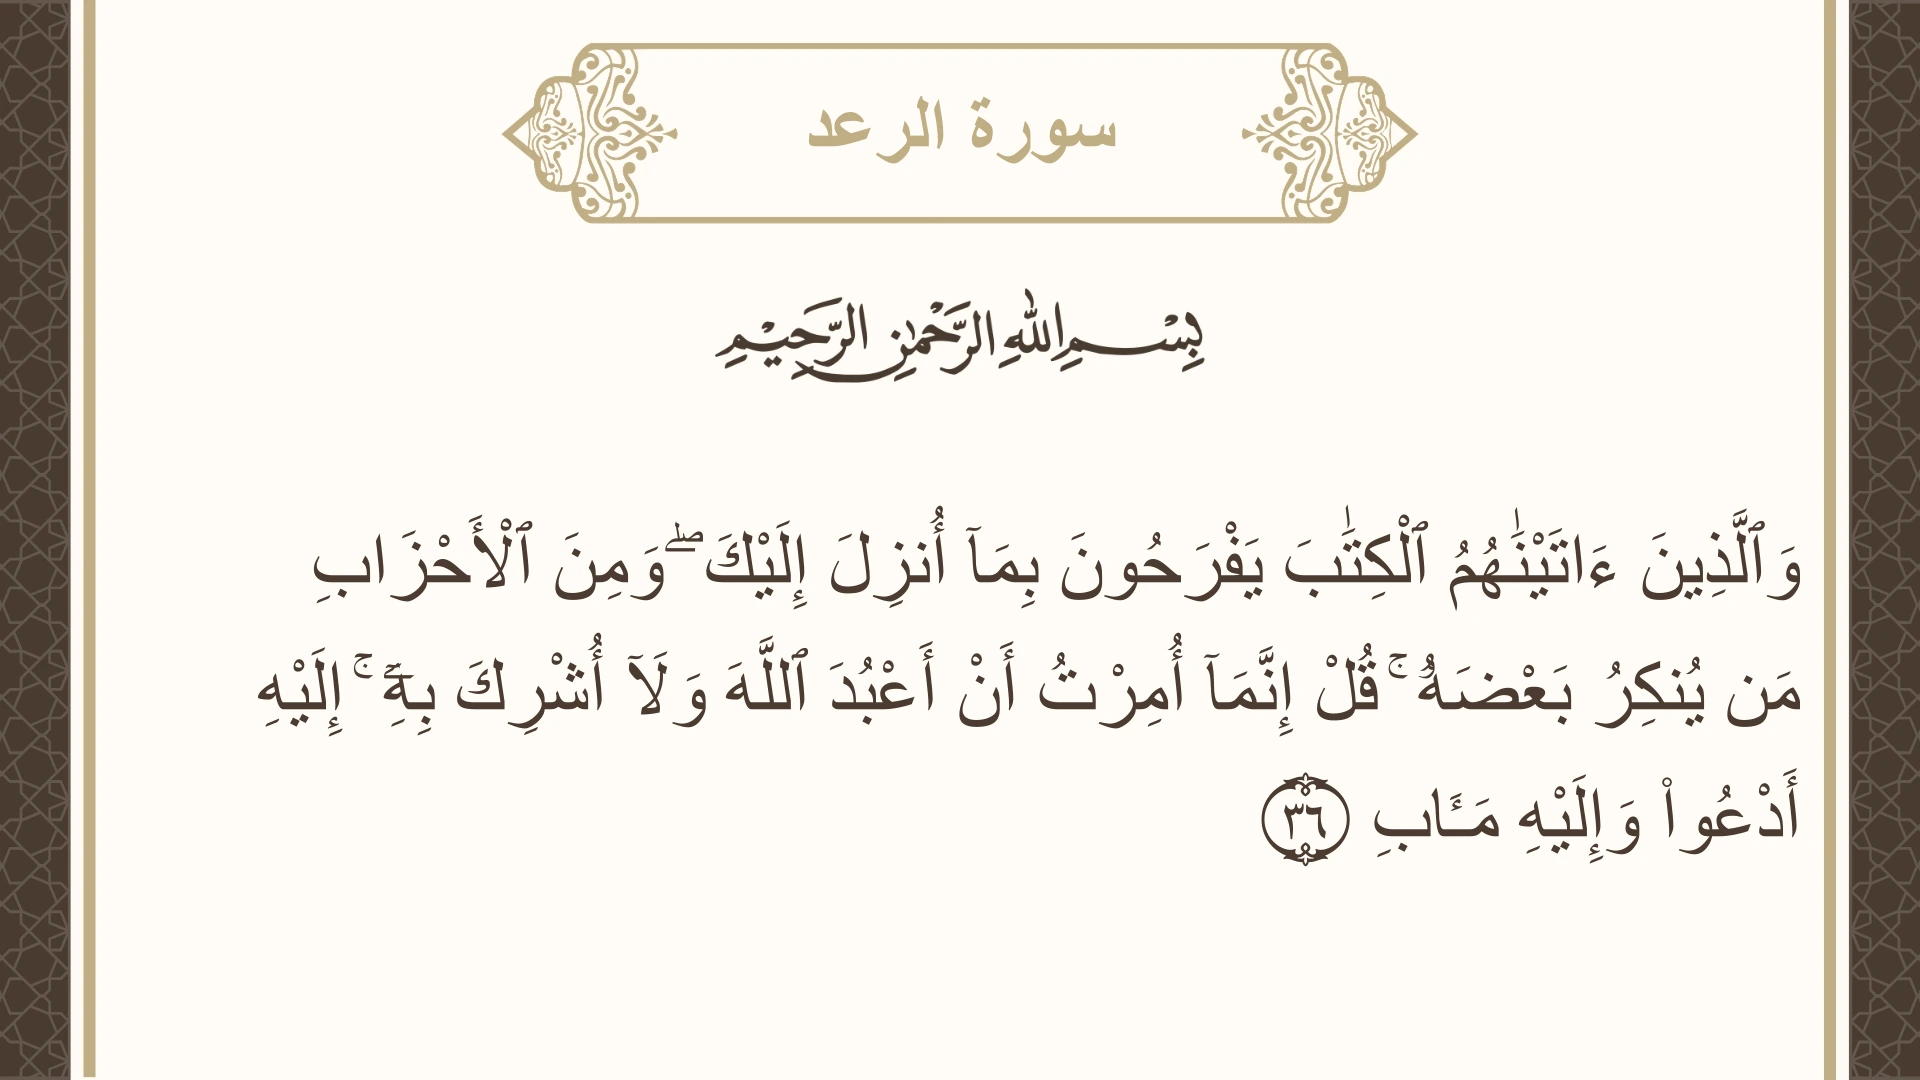 سورة الرعد
بِسْمِ اللهِ الرَّحْمٰنِ الرَّحِيْمِ
وَٱلَّذِينَ ءَاتَيْنَٰهُمُ ٱلْكِتَٰبَ يَفْرَحُونَ بِمَآ أُنزِلَ إِلَيْكَ ۖ وَمِنَ ٱلْأَحْزَابِ
مَن يُنكِرُ بَعْضَهُۥ ۚ قُلْ إِنَّمَآ أُمِرْتُ أَنْ أَعْبُدَ ٱللَّهَ وَلَآ أُشْرِكَ بِهِۦٓ ۚ إِلَيْهِ
أَدْعُوا۟ وَإِلَيْهِ مَـَٔابِ ٣٦